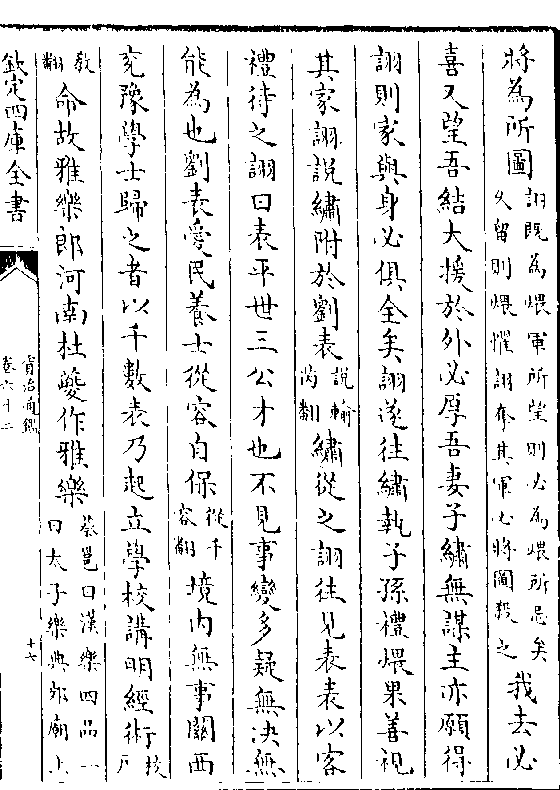 將為所圖詡既為煨軍所望則必為煨所忌矣久留則煨懼詡奪其軍必將圖殺之我去必
喜又望吾結大援於外必厚吾妻子繡無謀主亦願得
詡則家與身必俱全矣詡遂往繡執子孫禮煨果善視
其家詡說繡附於劉表說輸芮翻繡從之詡往見表表以客
禮待之詡曰表平世三公才也不見事變多疑無決無
能為也劉表愛民養士從容自保從千容翻境内無事關西
兖豫學士歸之者以千數表乃起立學校講明經術校戶
教翻命故雅樂郎河南杜夔作雅樂蔡邕曰漢樂四品一曰太子樂典郊廟上
欽定四庫全書
資治通鑑
卷六十二
十六